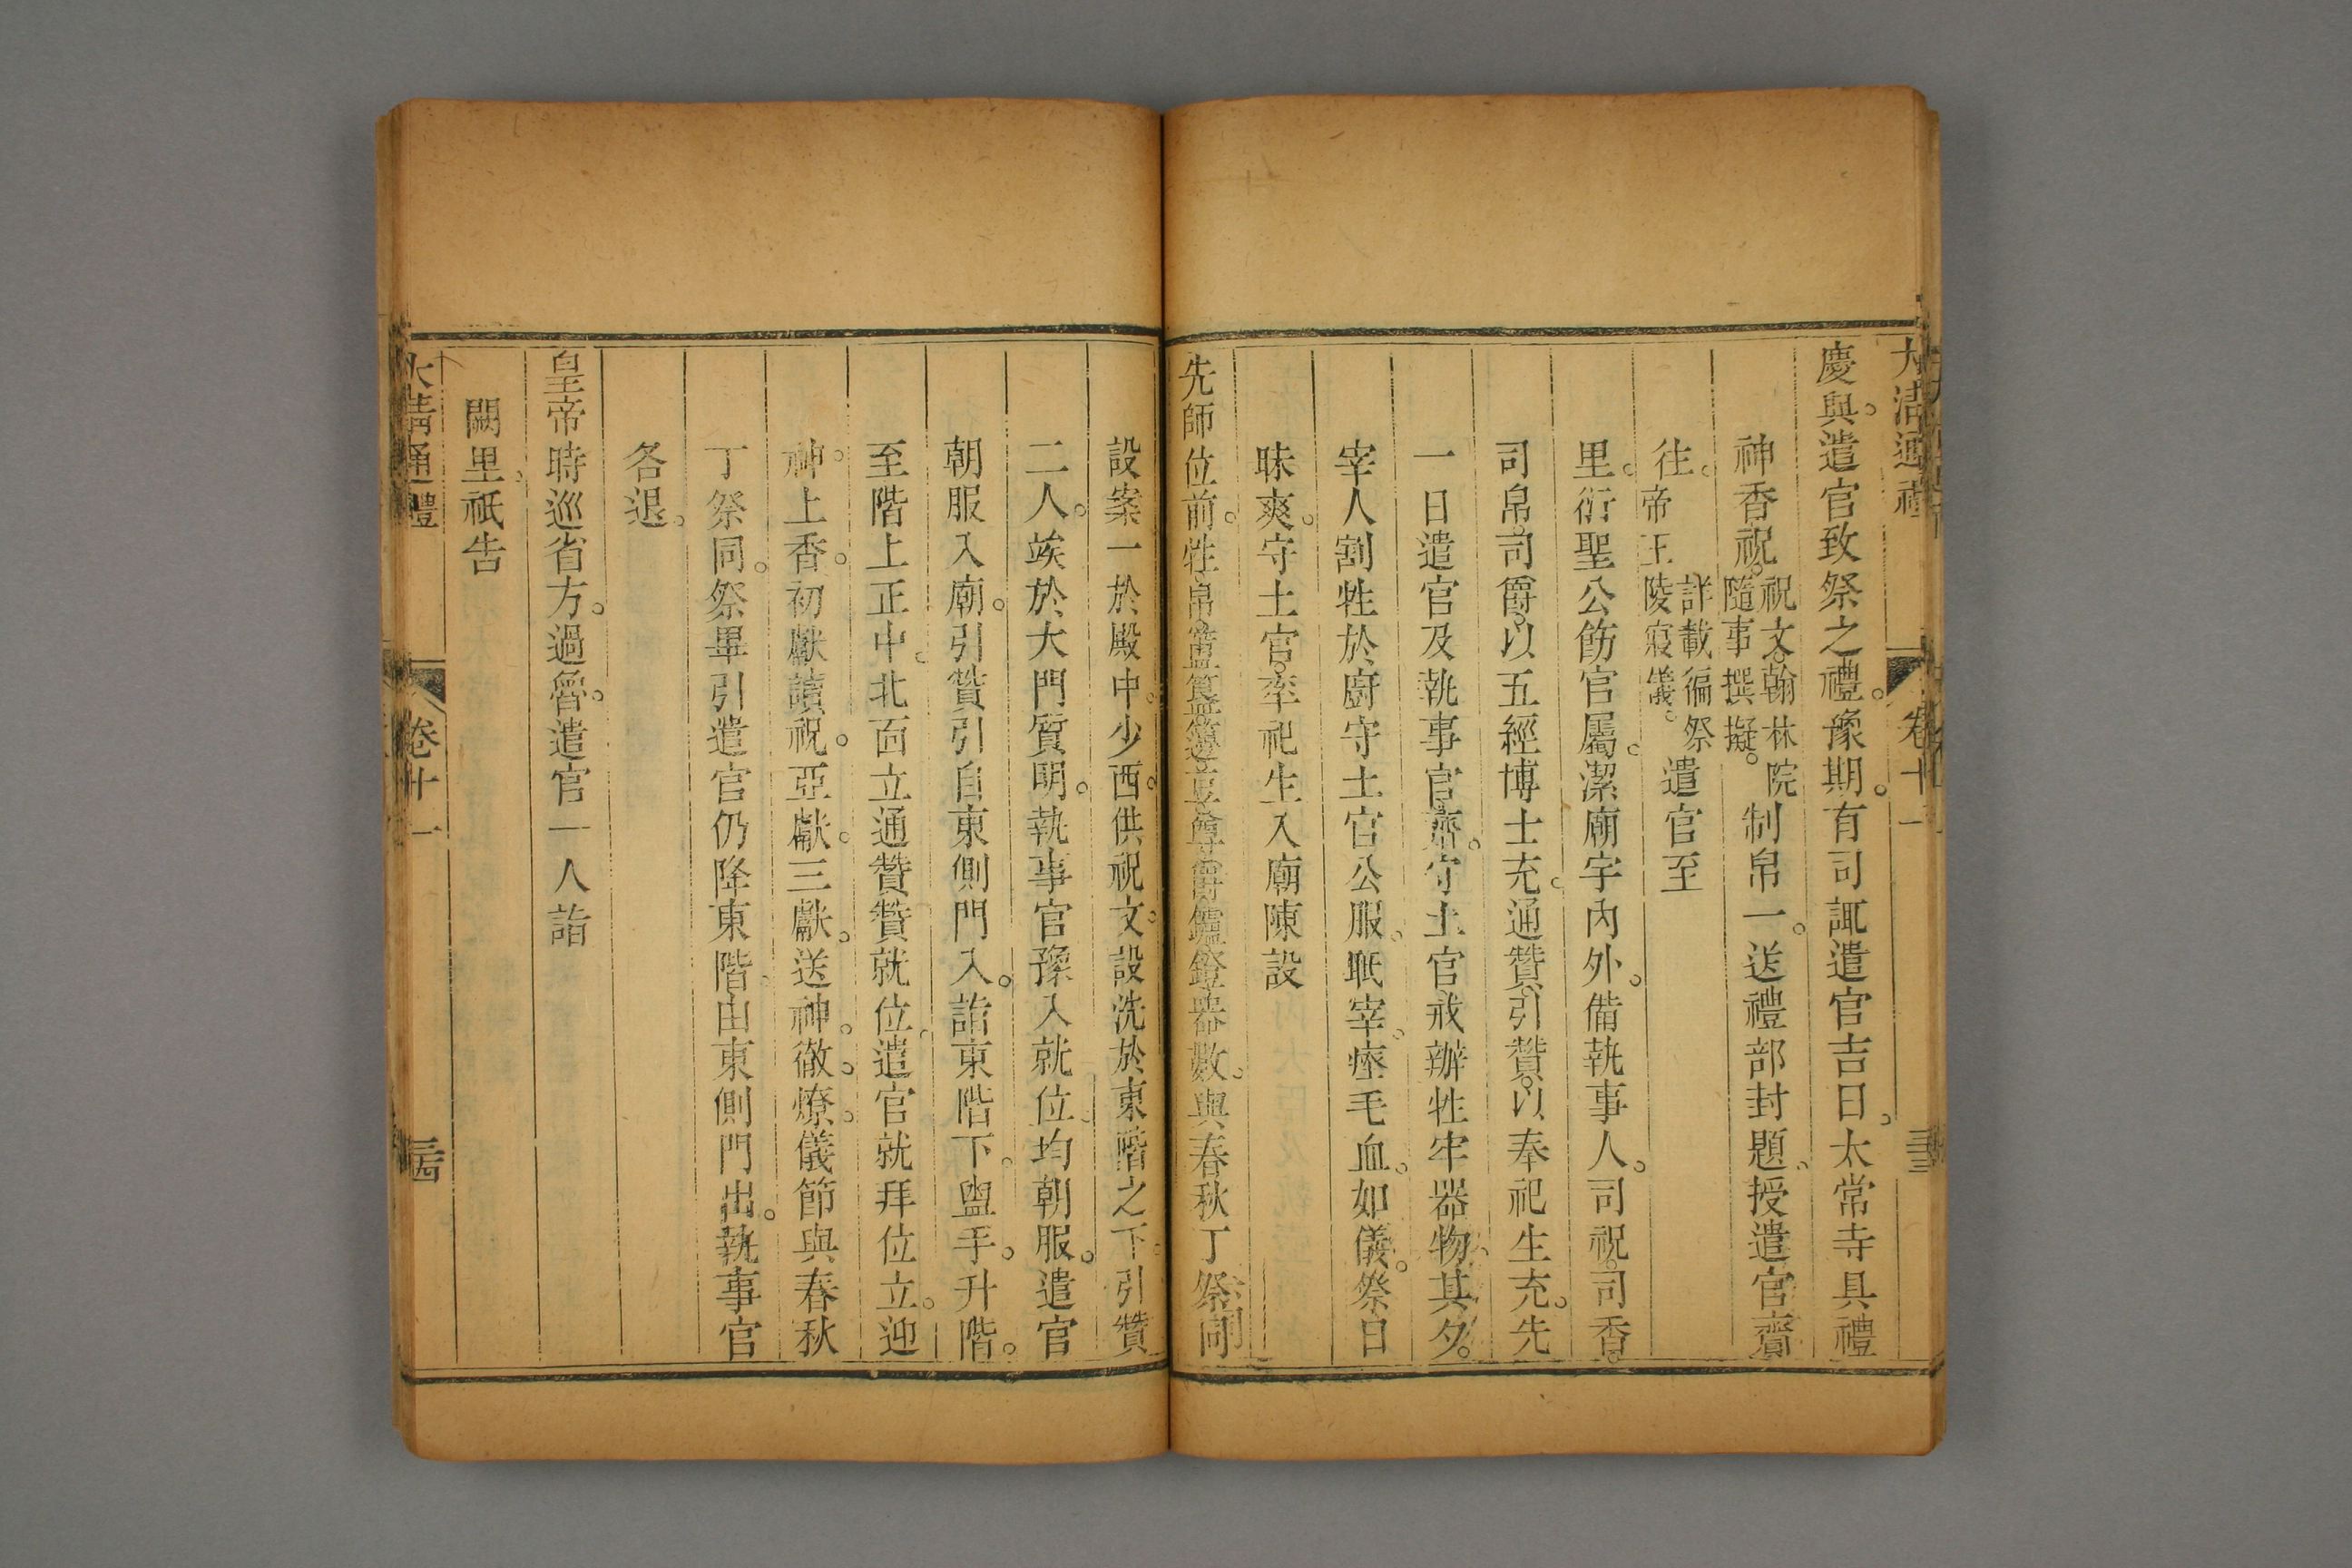 大清通禮 卷十一 三三
慶與。遣官致祭之禮。豫期。有司諏遣官吉日。太常寺具禮
神香祝。祝文。翰林院隨事撰擬。制帛一。送禮部封題。授遣官齎
往。帝王陵寢儀。詳載徧祭遣官至
里。衍聖公飭官屬。潔廟宇內外。備執事人。司祝。司香。
司帛。司爵。以五經博士充。通贊。引贊。以奉祀生充。先
一日遣官及執事官齋。守土官戒辦牲牢器物。其夕。
宰人割牲於廚守土官公服。眡宰。瘞毛血。如儀。祭日
昧爽。守土官。率祀生入廟陳設
先師位前。牲帛簠簋籩豆尊爵鑪鐙器數。與春秋丁祭同
設案一於殿中。少西。供祝文。設洗於東階之下。引贊
二人。竢於大門質明。執事官豫入就位。均朝服。遣官
朝服入廟。引贊引自東側門入。詣東階下。盥手。升階。
至階上正中。北面立通贊贊就位。遣官就拜位立。迎
神。上香。初獻讀祝。亞獻。三獻。送神。徹。燎。儀節與春秋
丁祭同。祭畢引遣官仍降東階。由東側門出。執事官
各退。
皇帝時巡省方。過魯。遣官一人詣
闕里。祇告
大清通禮 卷十一 三四